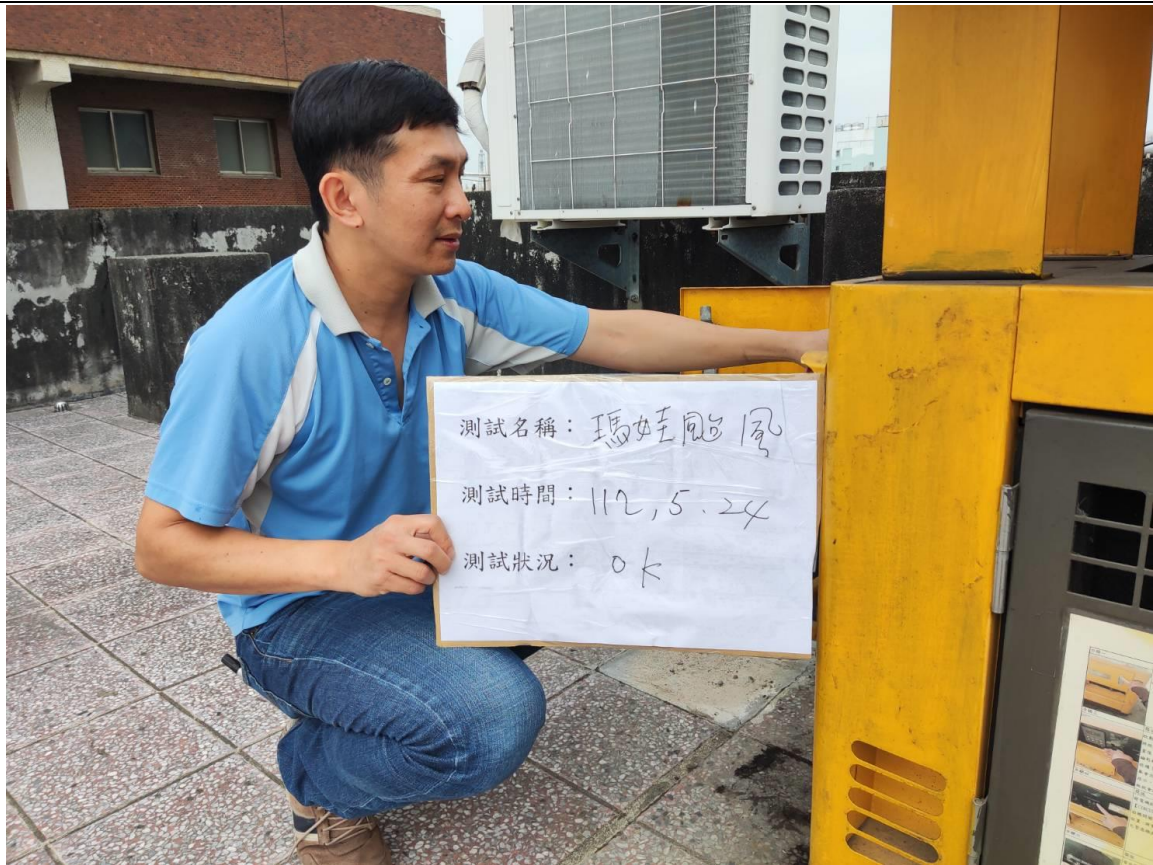 測試名稱：瑪娃颱風
測試時間：112.5.24
測試狀況：ok